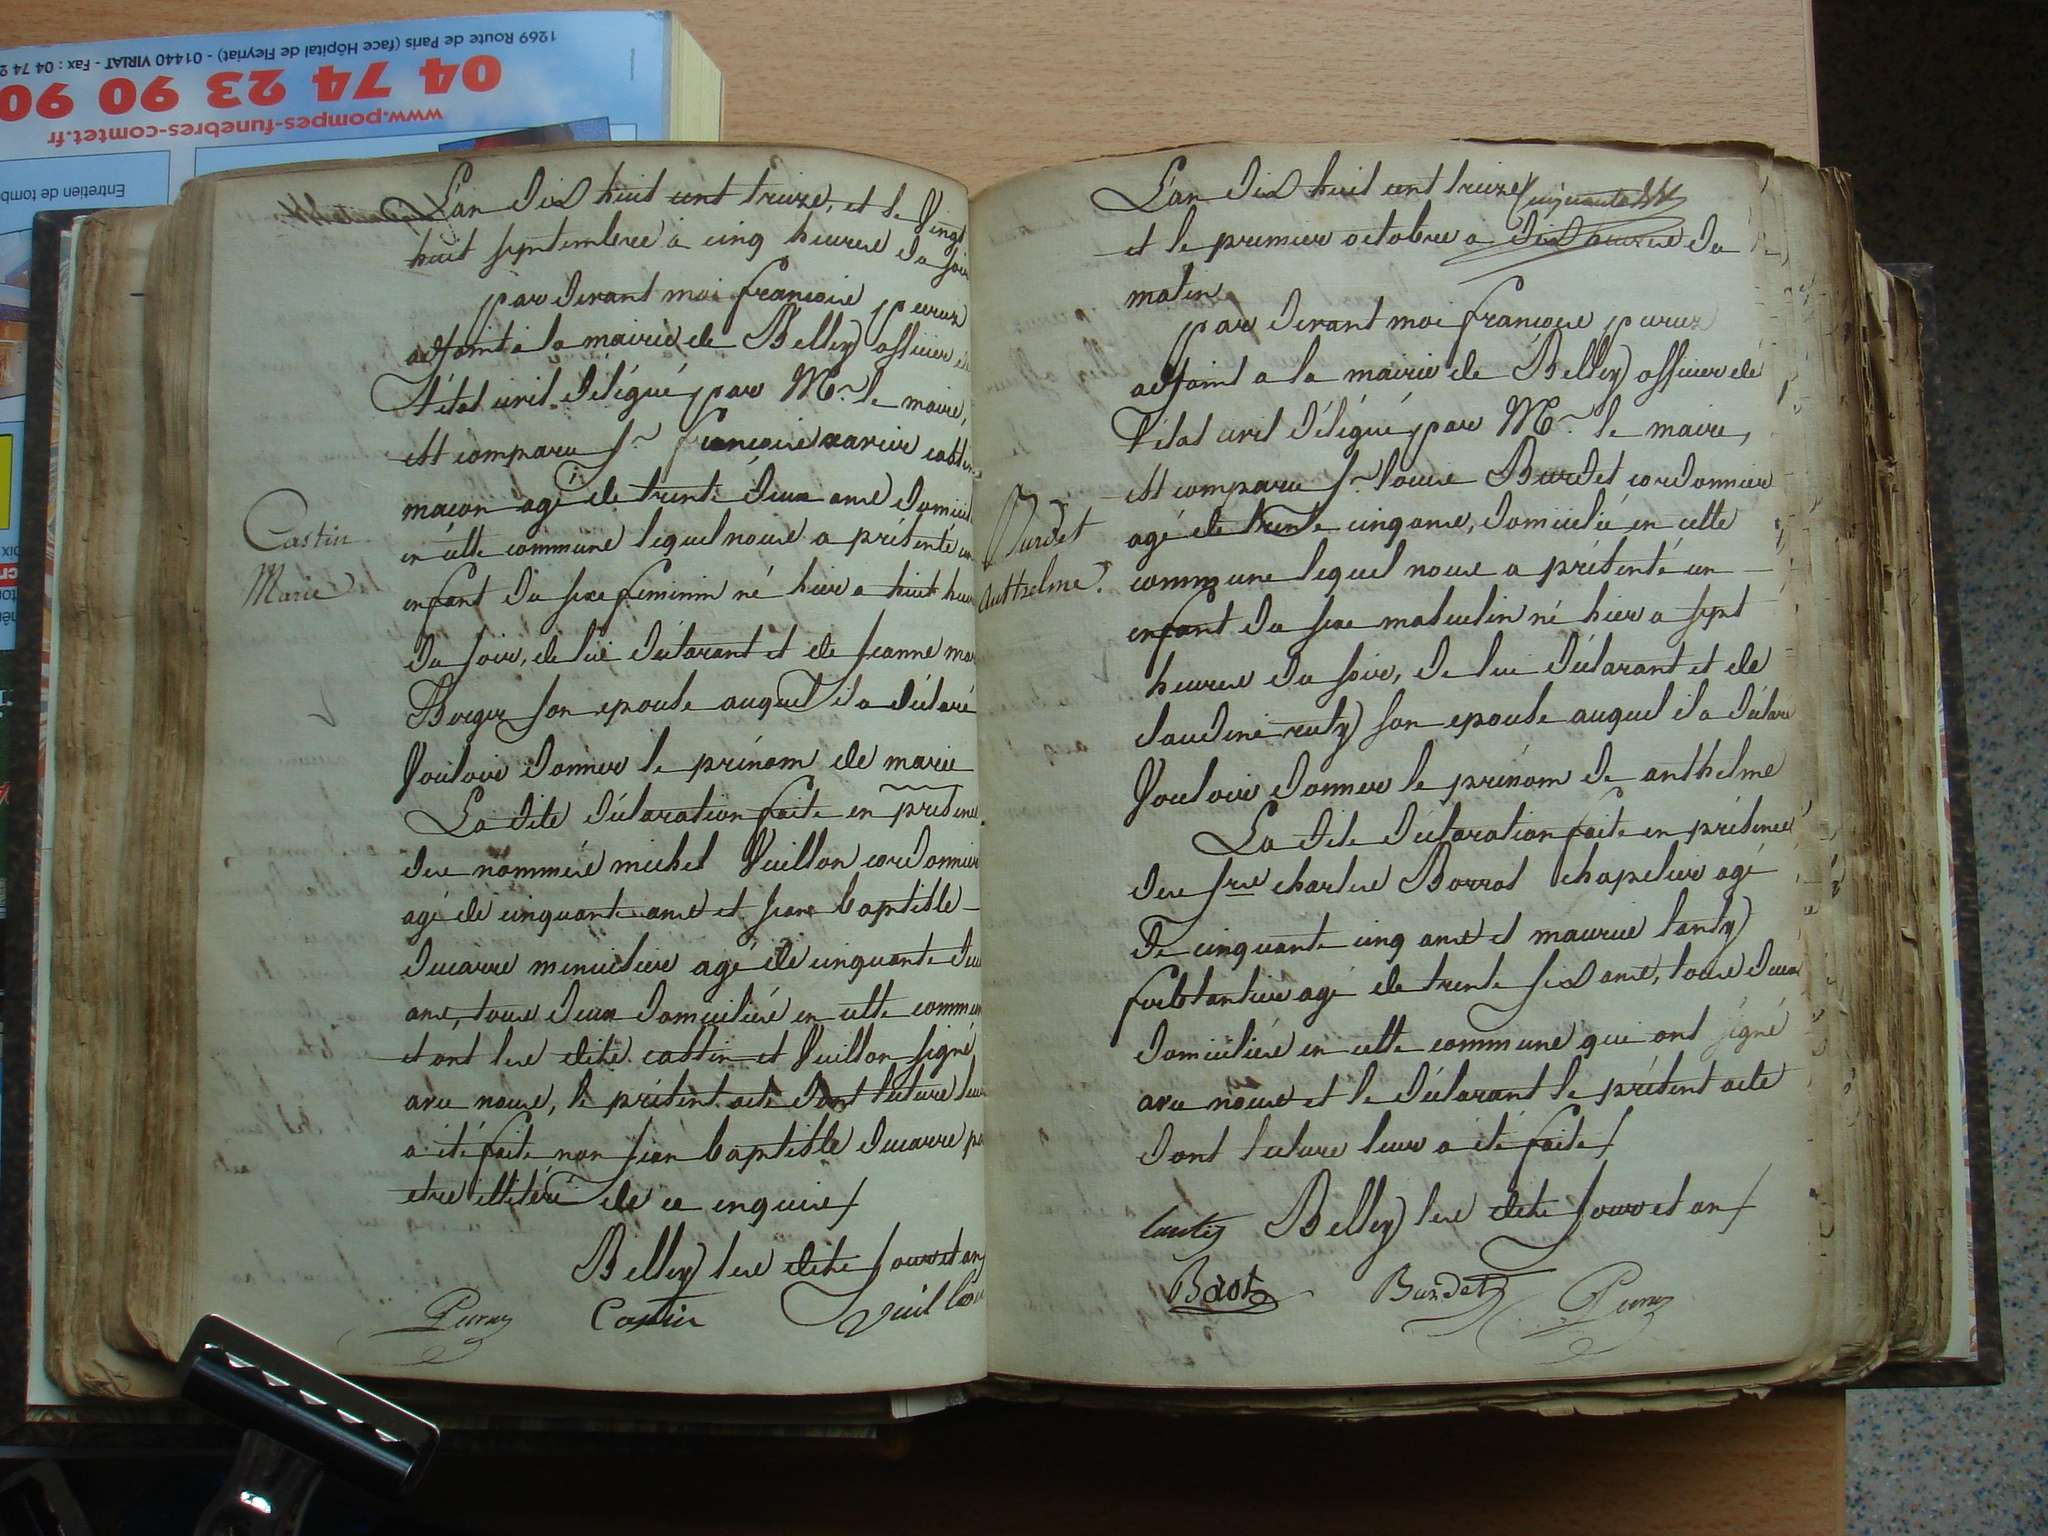 1269 Route de Paris (face Hôpital de Fleyriat) - 01440 VIRIAT - Fax : 04 74 2
04 74 23 90 90
www.pompes-funebres-comtet.fr
Entretien de tomb
L'an dix huit cent treize, et le Vingt
huit septembre a cinq heures du soir
par devant moi françois peruz
adjoint a la mairie de Belley officier de
l'état civil délégué par Mr. le maire,
est comparu sr. françois xavier castin
maçon agé de trente deux ans domicilié
en cette commune lequel nous a présenté un
enfant du sexe feminin né hier a huit heures
du soir, de lui déclarant et de jeanne marie
Berger son epouse auquel il a déclaré
Vouloir donner le prénom de marie
La dite déclaration faite en présence
des nommés michel Vuillon cordonnier
agé de cinquante ans et jean baptiste
ducarre menuisier agé de cinquante deux
ans, tous deux domiciliés en cette commune
et ont les dits castin et Vuillon signé
avec nous, le présent acte dont lecture leur
a été faite non jean baptiste ducarre pour
etre illitéré de ce enquis/
Belley les dits jour et an
Castin
Vuillon
Castin
Marie
L'an dix huit cent treize
et le premier octobre a dix heures du
matin
par devant moi françois peruz
adjoint a la mairie de Belley officier de
l'état civil délégué par Mr. le maire,
est comparu sr. louis Burdet cordonnier
agé de trente cinq ans, domicilié en cette
commune lequel nous a présenté un
enfant du sexe masculin né hier a sept
heures du soir, de lui déclarant et de
claudine ruty son epouse auquel il a déclaré
Vouloir donner le prénom de anthelme
La dite déclaration faite en présence
des srs charles Borrot chapelier agé
de cinquante cinq ans et maurice tanty
agé de trente six ans, tous deux
domiciliés en cette commune qui ont signé
avec nous et le déclarant le présent acte
dont lecture leur a été faite/
Belley les dits jour et an/
Burdet
Burdet
Anthelme